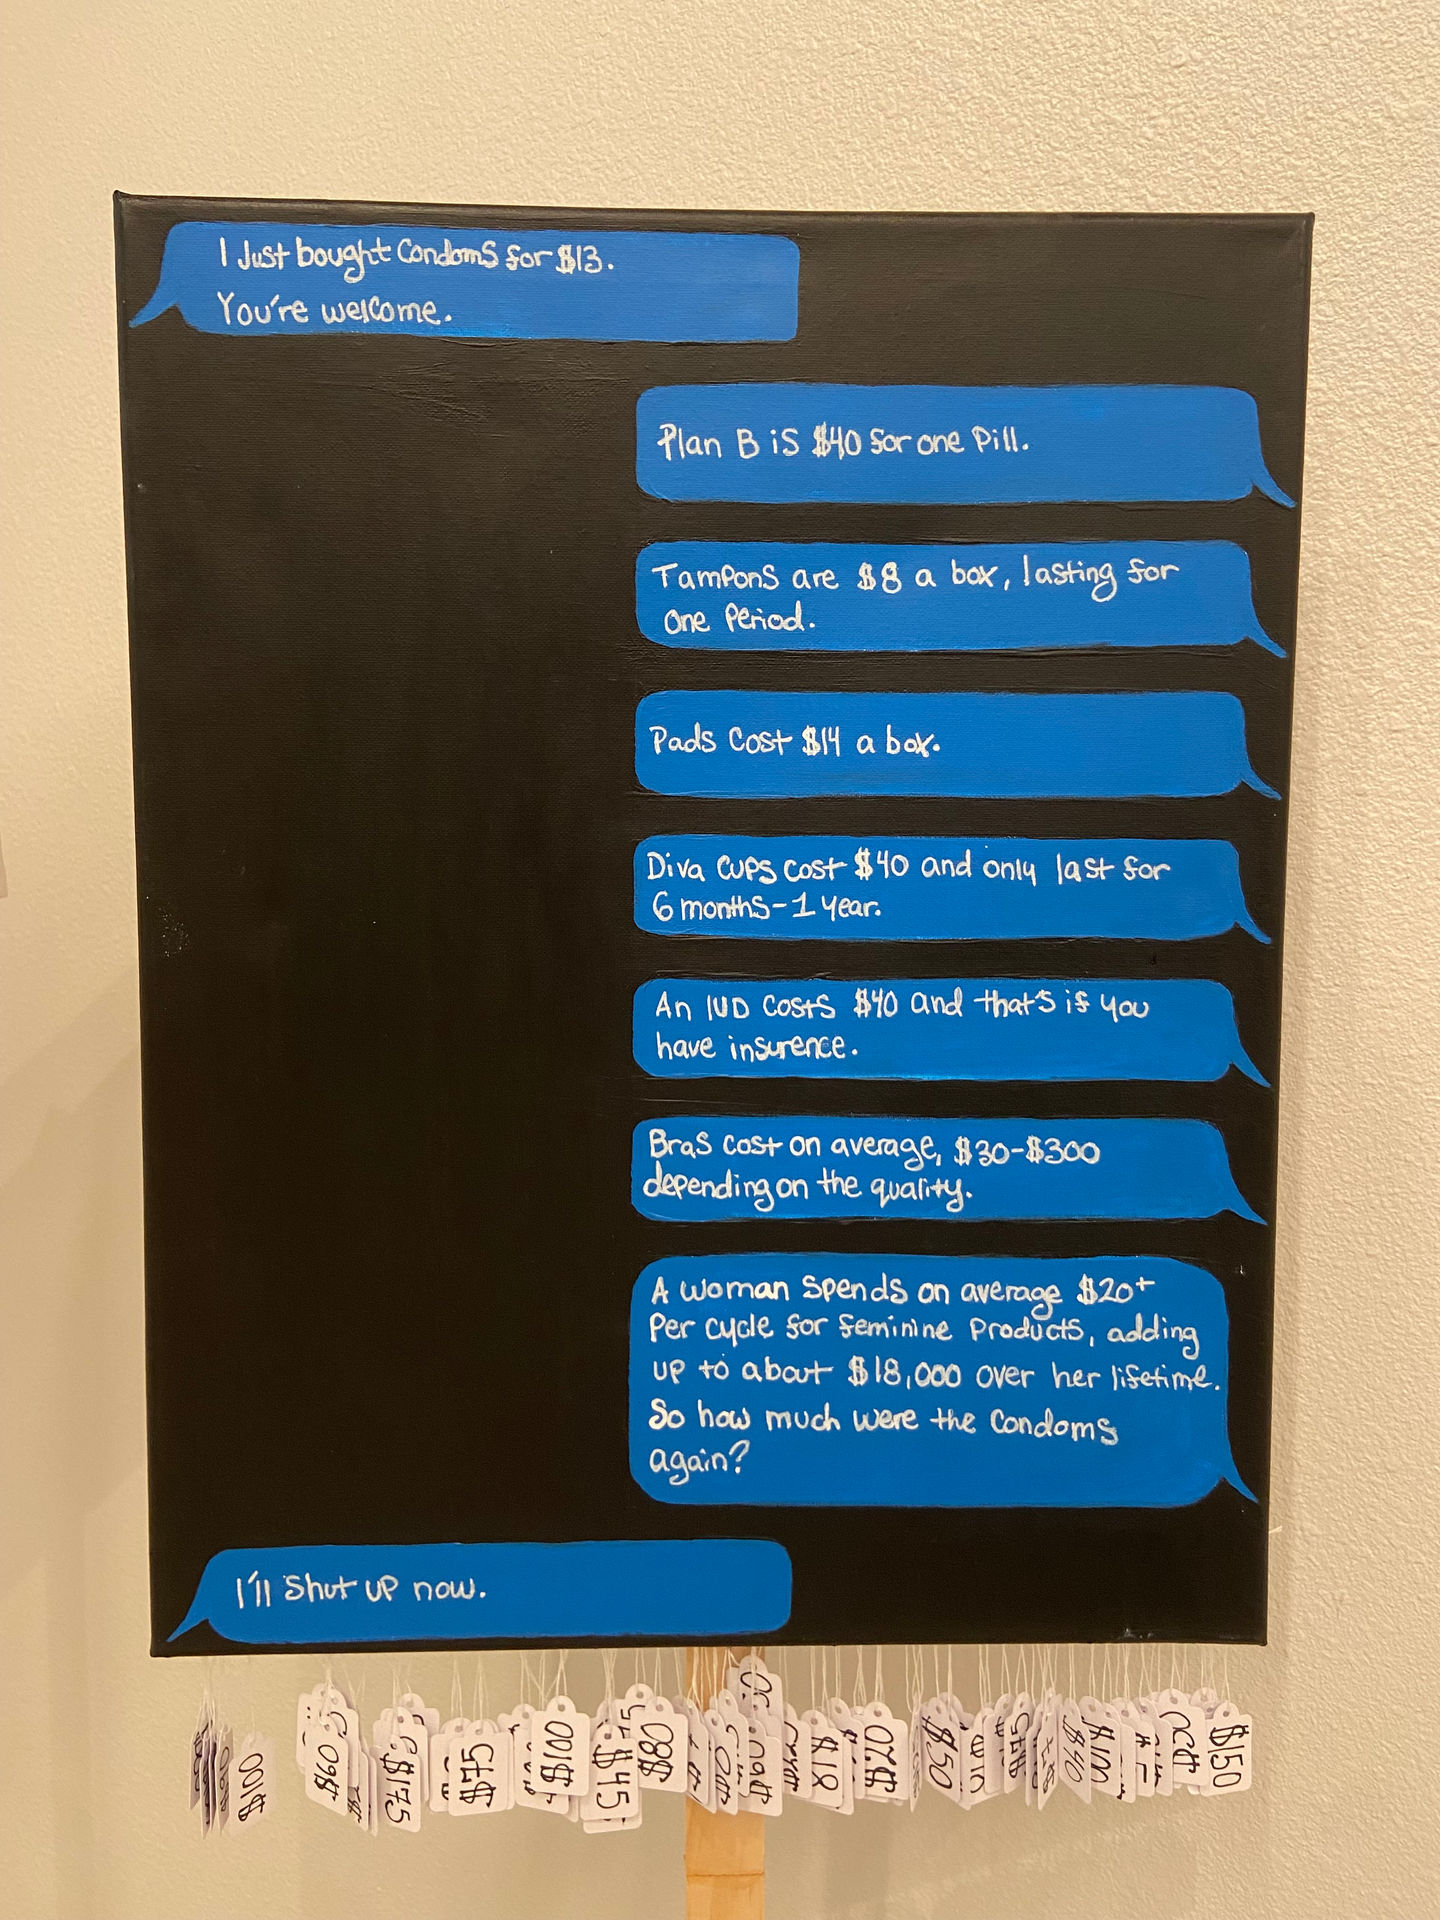 I Just bought Condoms for $13.
You're welcome.
Plan B is $40 for one Pill.
Tampons are $8 a box, lasting for
one Period.
Pads Cost $14 a box.
Diva cups cost $40 and only last for
6 months-1 year.
An IUD Costs $40 and that's if you
have insurence.
Bras cost on average, $30-$300
depending on the quality.
A woman Spends on average $20+
Per cycle for feminine Products, adding
up to about $18,000 over her lifetime.
So how much were the Condoms
again?
I'll Shut up now.
$100
$175
$75
$100
$45
$80
$18
$50
$40
$100
$150